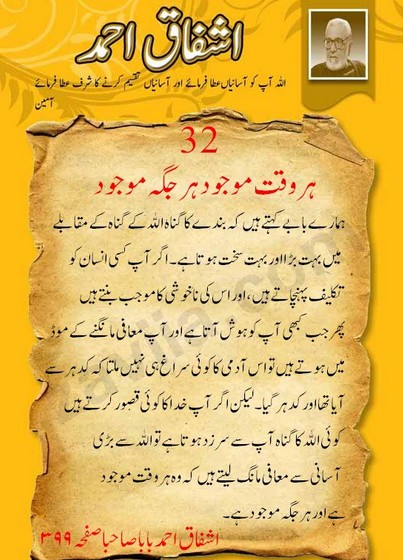 اشفاق احمد
اللہ آپ کو آسانیاں عطا فرمائے اور آسانیاں تقسیم کرنے کا شرف عطا فرمائے
آمین
32
ہر وقت موجود ہر جگہ موجود
ہمارے بابے کہتے ہیں کہ بندے کا گناہ اللہ کے گناہ کے مقابلے
میں بہت بڑا اور بہت سخت ہوتا ہے۔ اگر آپ کسی انسان کو
تکلیف پہنچاتے ہیں، اور اس کی ناخوشی کا موجب بنتے ہیں
پھر جب کبھی آپ کو ہوش آتا ہے اور آپ معافی مانگنے کے موڈ
میں ہوتے ہیں تو اس آدمی کا کوئی سراغ ہی نہیں ملتا کہ کدہر سے
آیا تھا اور کدہر گیا۔ لیکن اگر آپ خدا کا کوئی قصور کرتے ہیں
کوئی اللہ کا گناہ آپ سے سرزد ہوتا ہے تو اللہ سے بڑی
آسانی سے معافی مانگ لیتے ہیں کہ وہ ہر وقت موجود
ہے اور ہر جگہ موجود ہے۔
اشفاق احمد بابا صاحبا صفحہ ۳۹۹